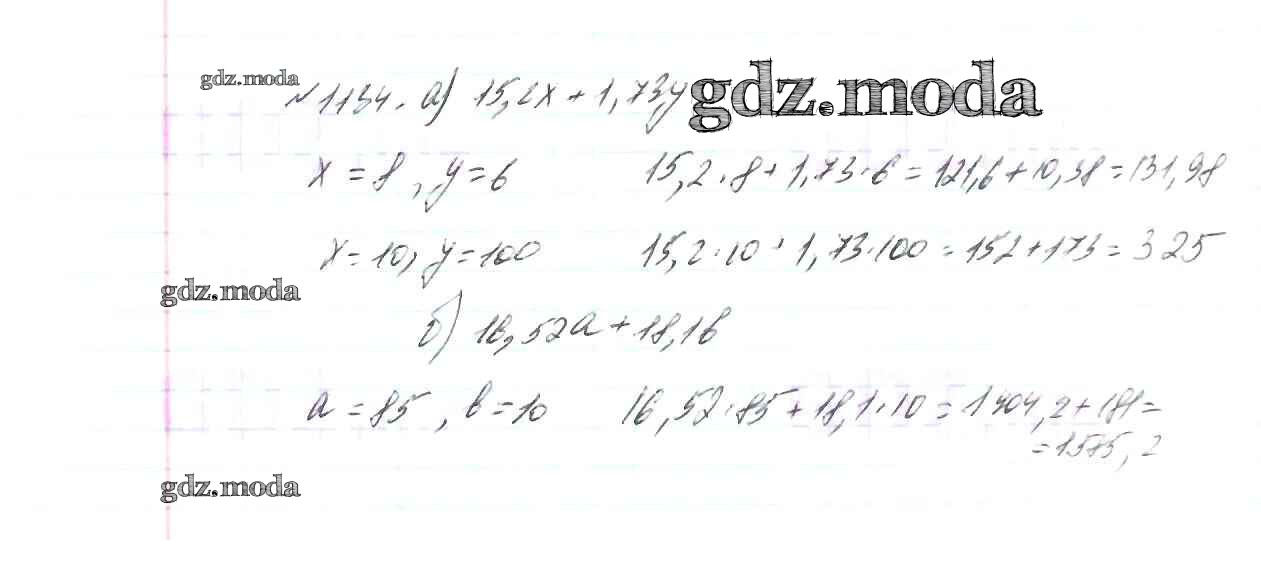 gdz.moda
№ 1134. а) 15,2x + 1,73y gdz.moda
x = 8, y = 6 15,2·8 + 1,73·6 = 121,6 + 10,38 = 131,98
x = 10, y = 100 15,2·10 + 1,73·100 = 152 + 173 = 325
gdz.moda
б) 16,52a + 18,1в
a = 85, в = 10 16,52·85 + 18,1·10 = 1404,2 + 181 =
= 1575,2
gdz.moda